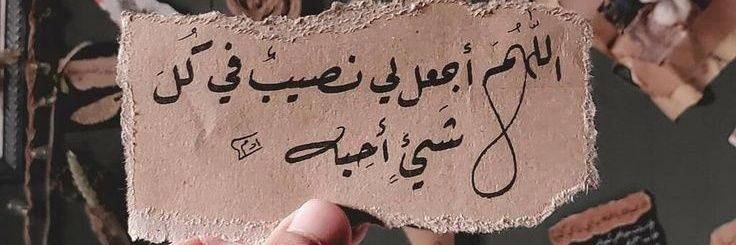 اللّهُمَّ أجعل لي نصيبٌ في كُلَ
شيئٍ أُحِبه